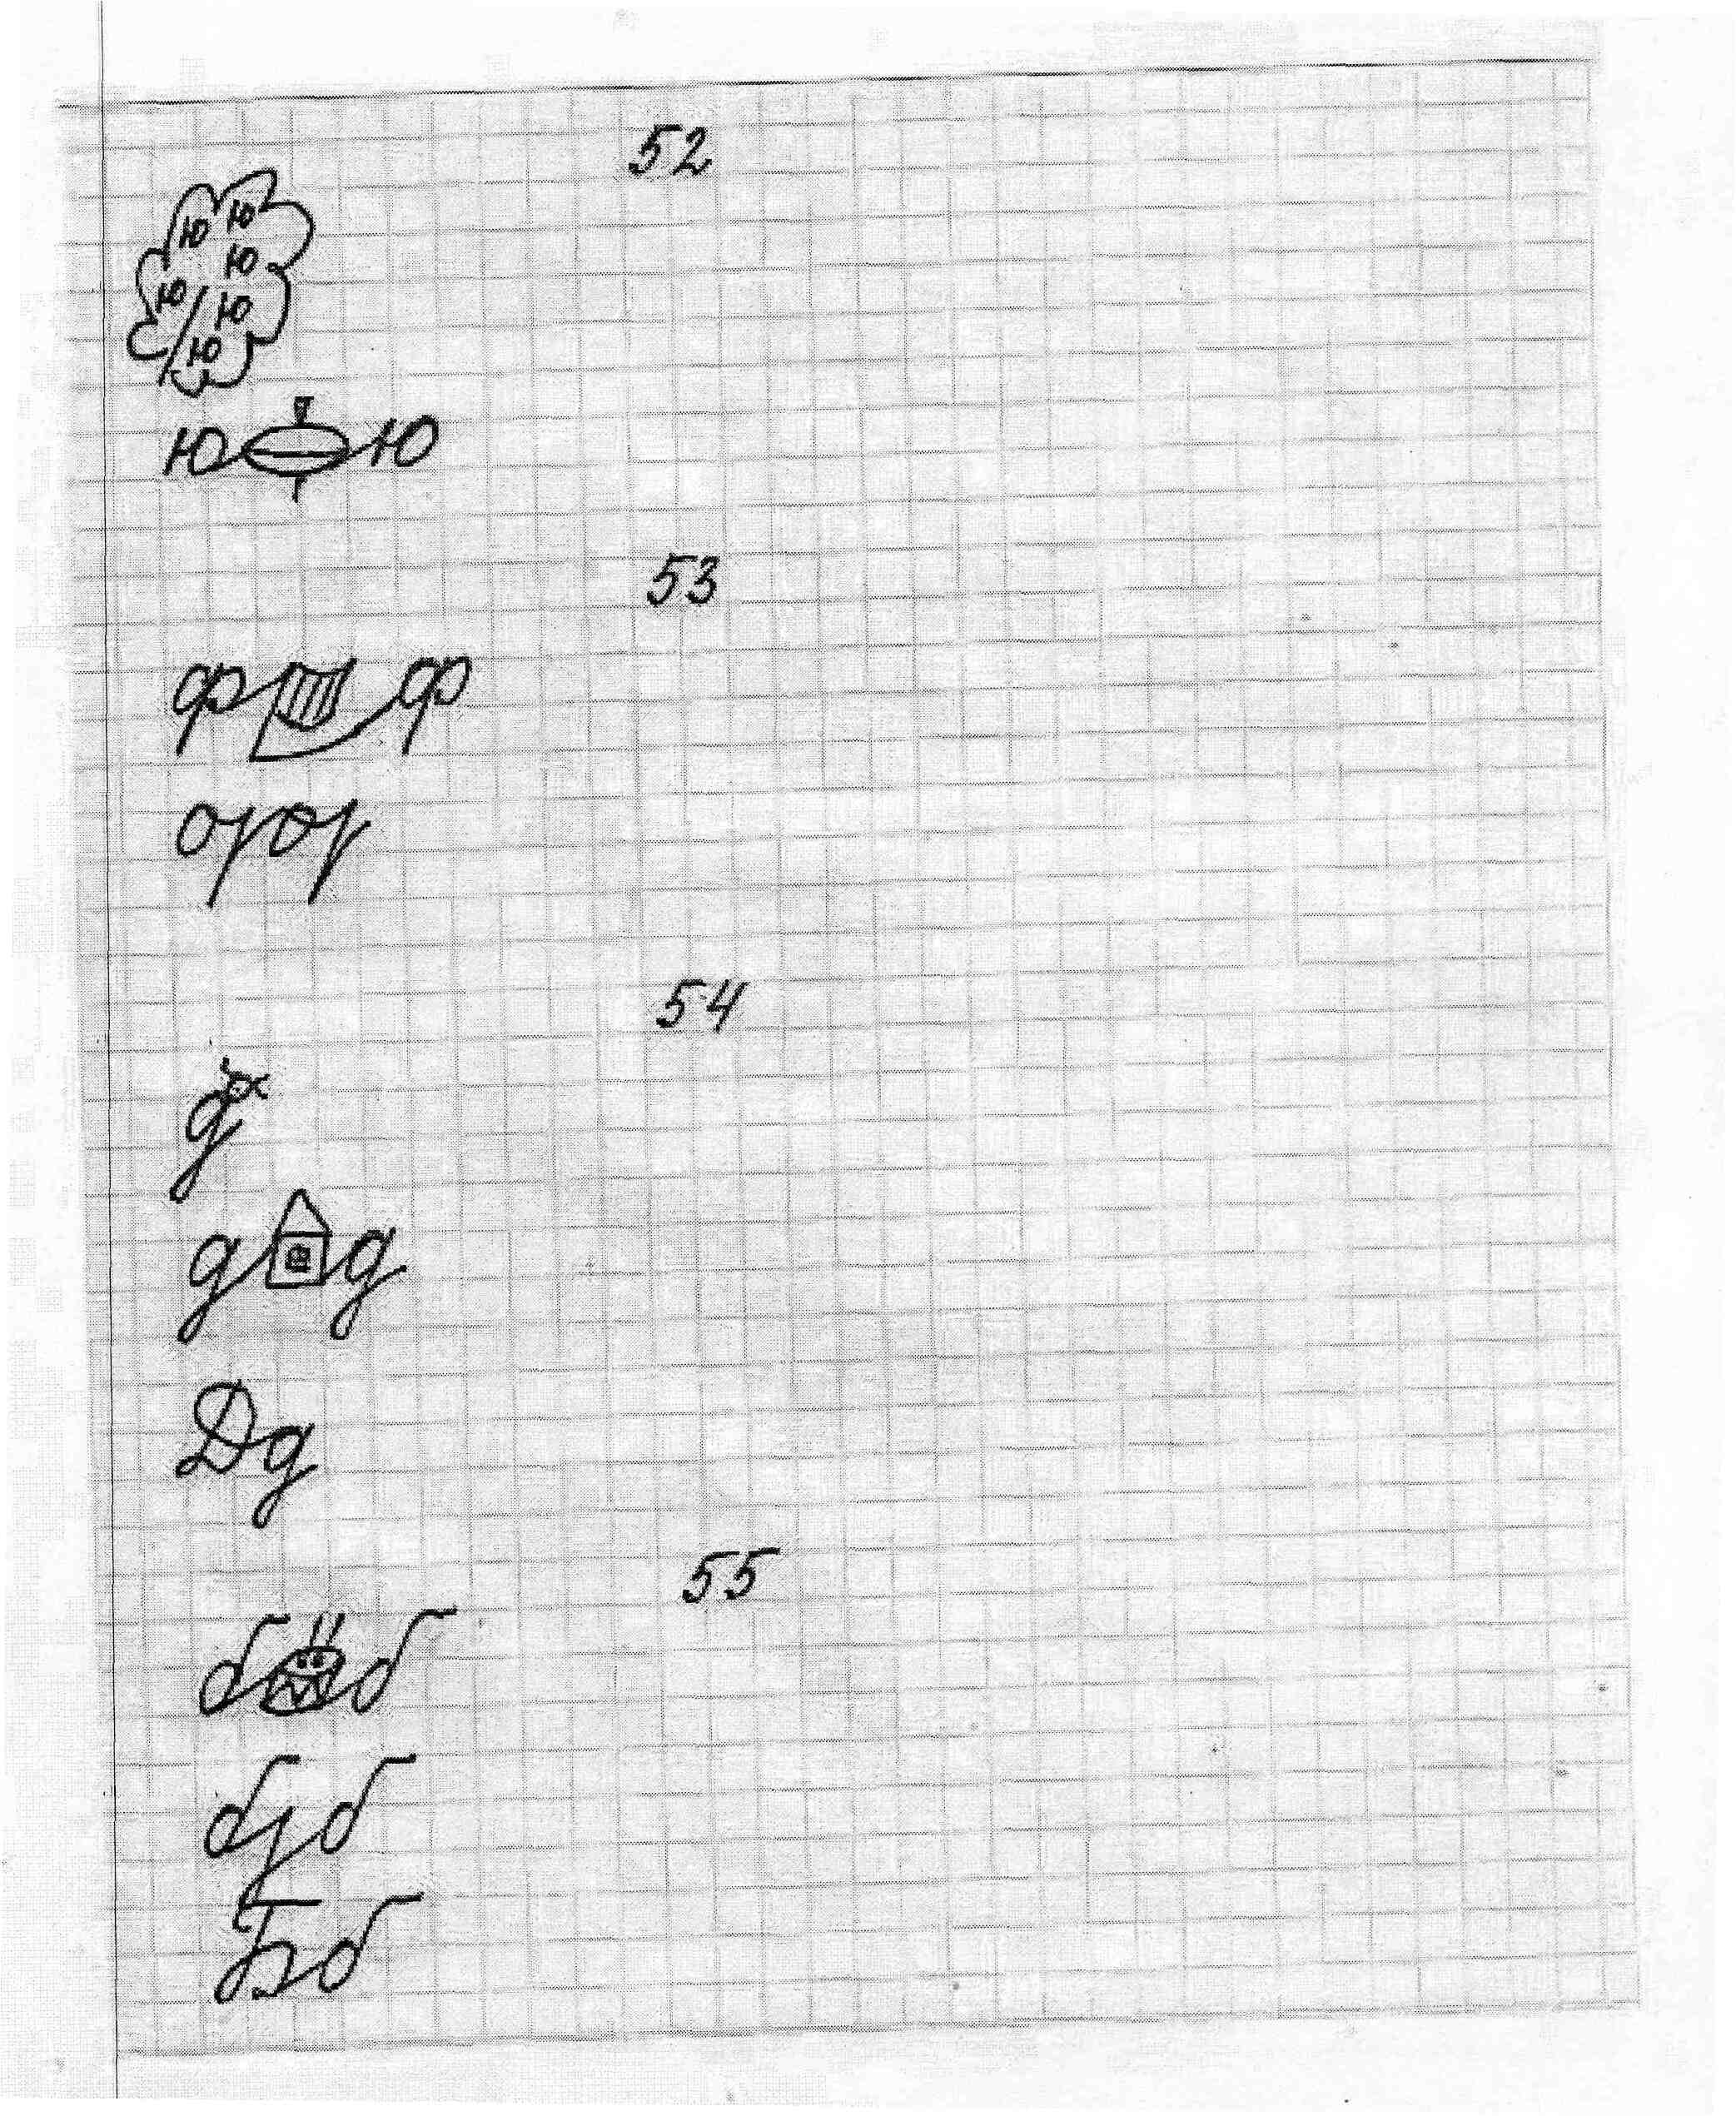 52
ю ю
ю
ю ю
ю
ю ю
53
ф ф
оуоу
54
д
д д
Дд
55
б б
буб
Бб